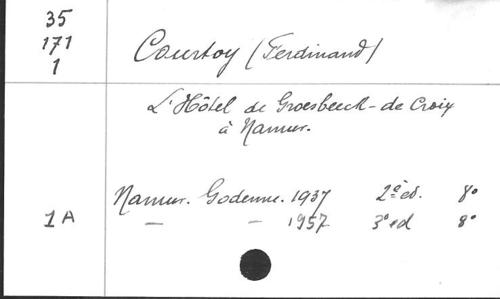 35
171
1
Courtoy (Ferdinand)
L'Hôtel de Groesbeeck-de Croix
à Namur.
Namur. Godenne. 1937 2e éd. 8o
1A — — 1957 3e ed 8o